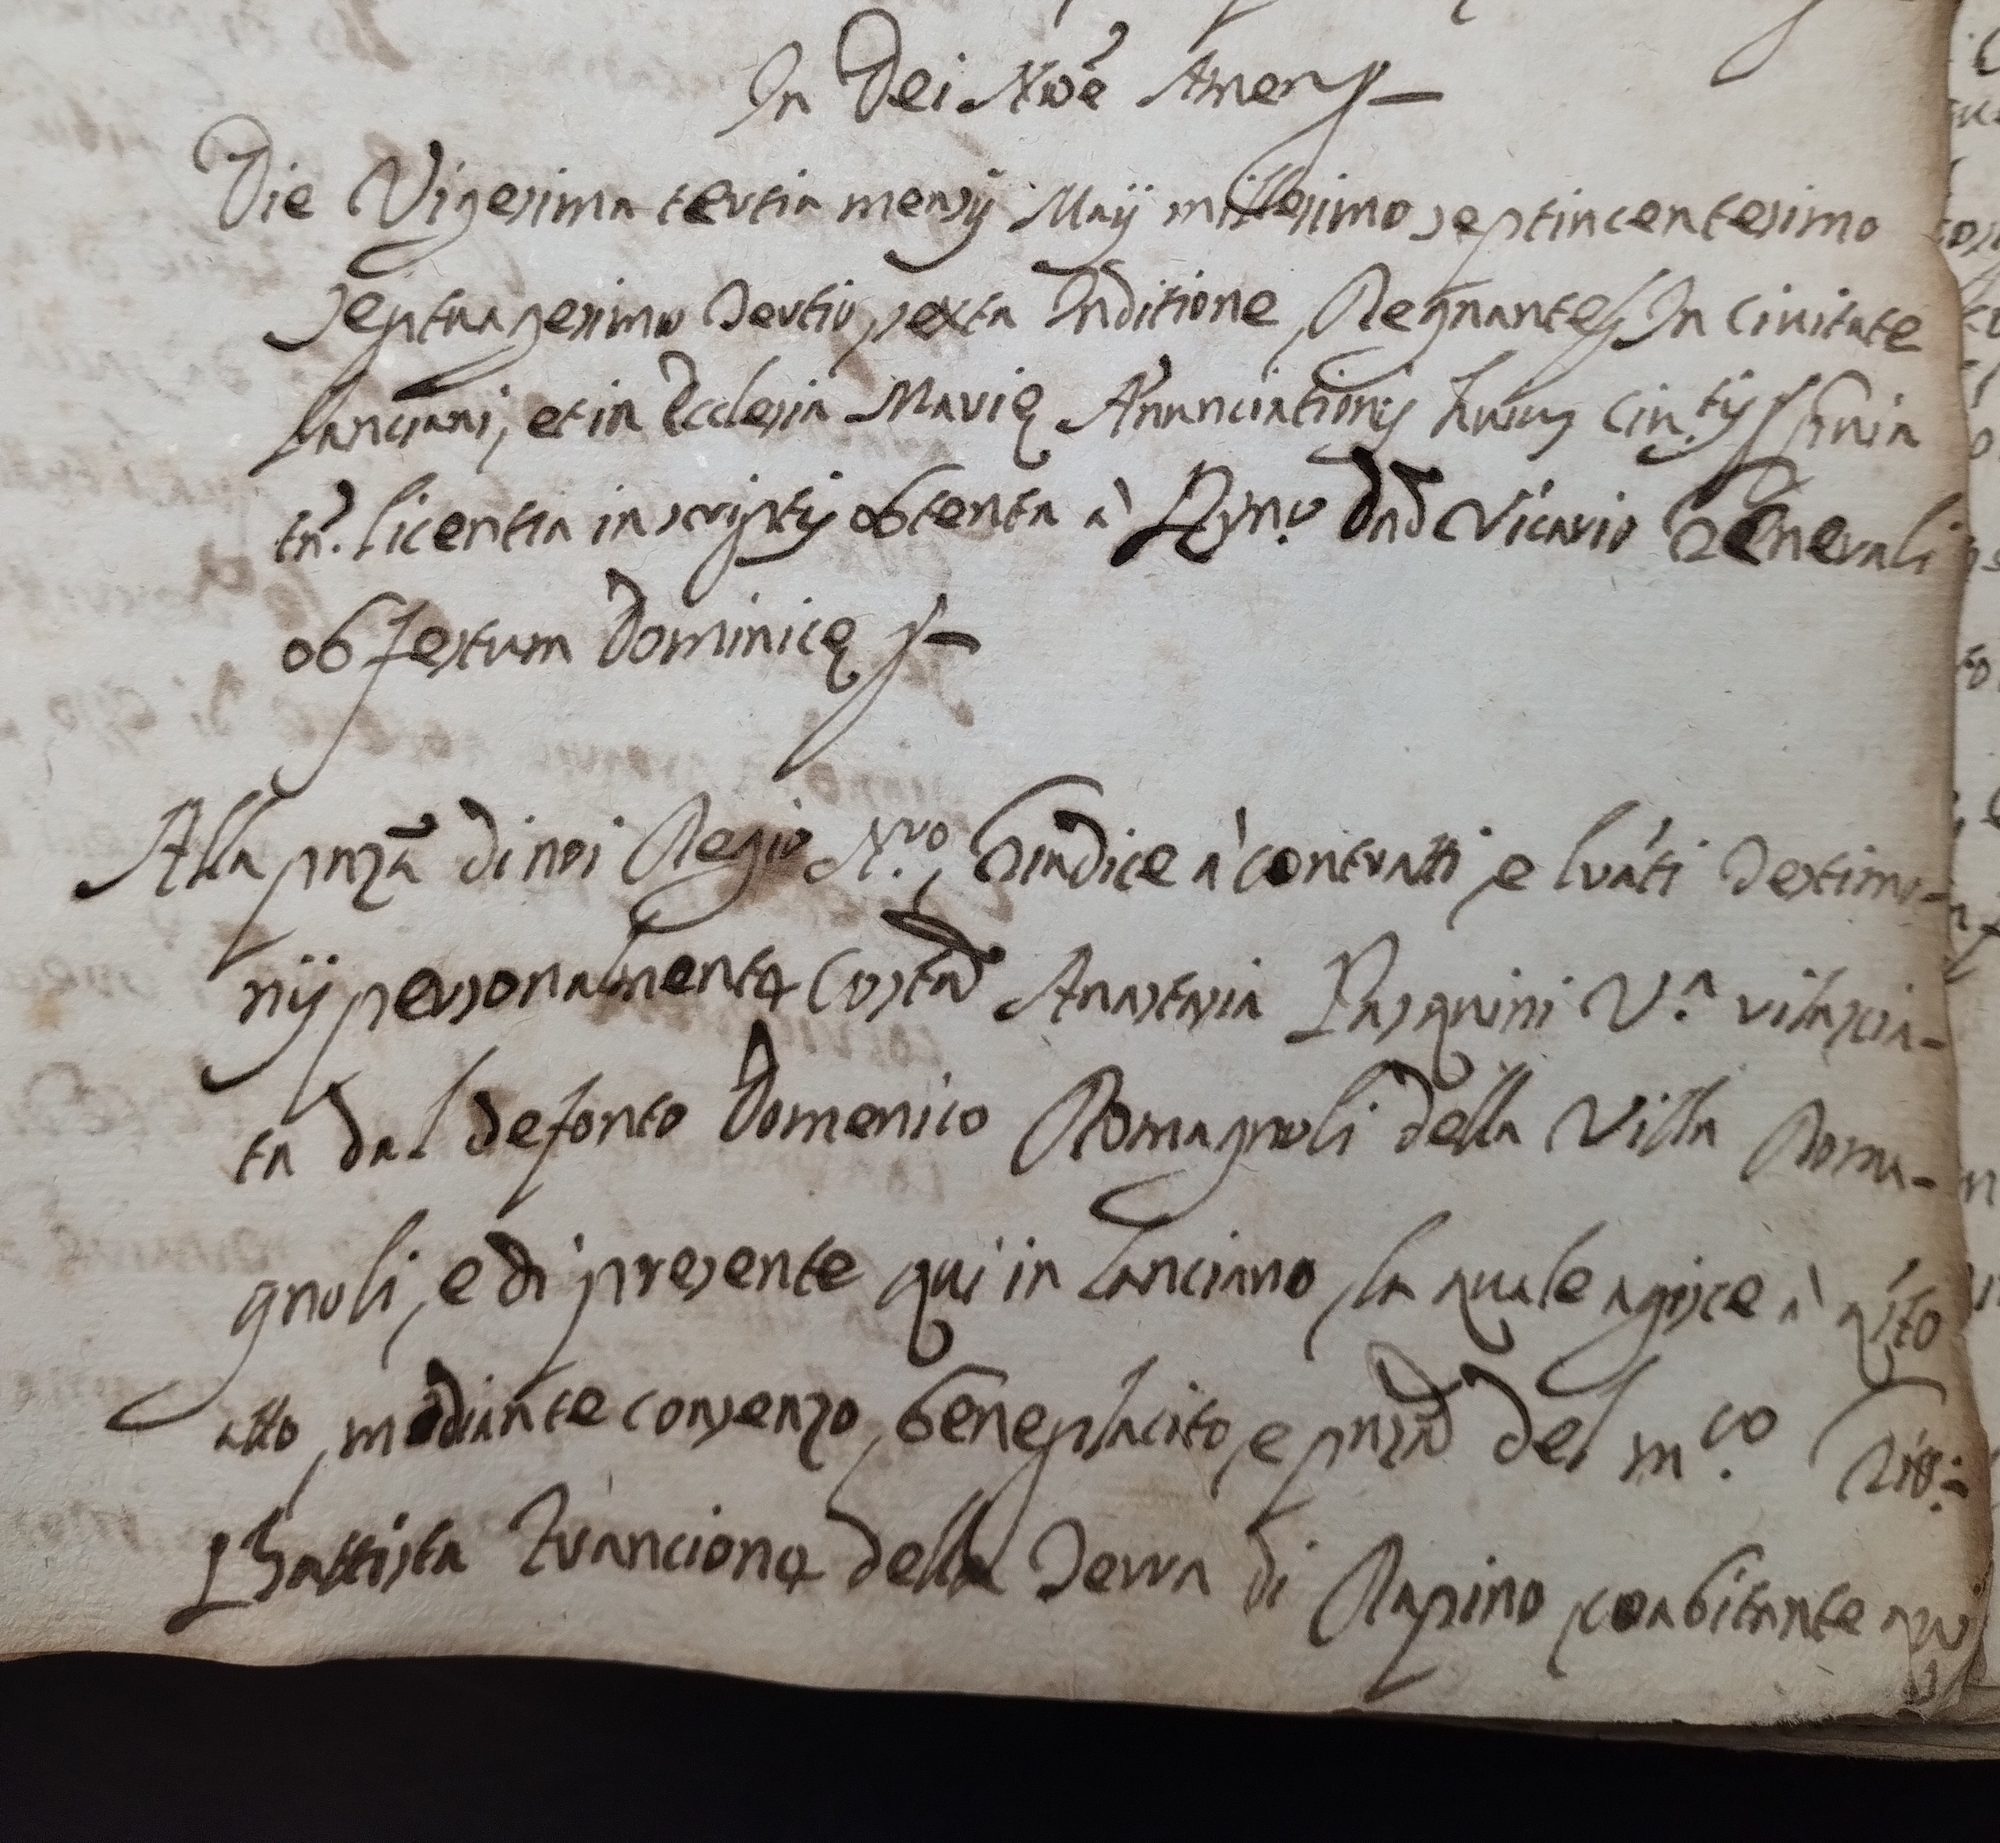 In Dei Noe Amen
Die Vigesima tertia mensis Maij millesimo septincentesimo
septuagesimo Tertio, sexta Inditione, Regnante, In Civitate
Lanciani, et in Ecclesia Mariæ Anunciationis huius Civ.tis prævia
tn. licentia in scriptis obtenta à R.mo Dno Vicario Generali
ob Festum Dominicæ
Alla pnza di noi Regio N.ro, Giudice à contratti, e lrati Testimo-
nij personalmente Costta Anastasia Pasquini V.a rilascia-
ta dal defonto Domenico Romagnoli della Villa Roma-
gnoli, e di presente qui in Lanciano, la quale agisce à qsto
atto, mediante consenzo, beneplacito, e pnza del m.co Gio:
Battista Francione della Terra di Rapino, coabitante qui